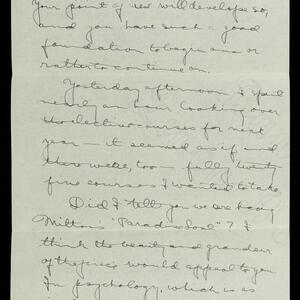 your point of view will develope so,
and you have such a good
foundation to begin on or
rather to continue on.
Yesterday afternoon I spent
nearly an hour looking over
the elective courses for next
year – it seemed as if, and
there were, too – fully twenty
five courses I wanted to take.
Did I tell you we are having
Milton's "Paradise Lost"? I
think the beauty and grandeur
of the piece would appeal to you
In psychology, which is as